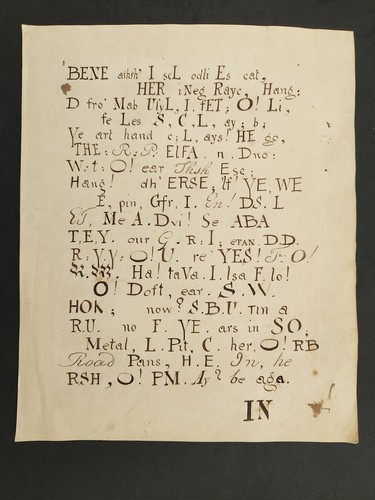 BENE aishsh' I scL odli Es cat,
HER iNeg Rayc, Hang:
D fro' Mab Ulyl, I. fET; O! Li,
fe Les S, C, L, ay; b;
Ye art hand c; L, ays! HE go,
THE: R: P: ElFA. n. Dno:
W: t: O! ear Thsh Ese;
Hang! dh' ERSE; If YE, WE
E, pin, Gfr, I. En! DS. L
Es, Me A. Dvi! Se ABA
T,E,Y. our G. R: I; ETAN. D.D.
R: V,V: O! U. re' YES! F: O!
R.M. Ha! taVa. I. lsa F. lo!
O! Doft, ear. S. W.
HOK; now? S.B.U. Tin a
R.U. no F. YE. ars in SO,
Metal, L. Pit, C. her, O! RB
Road Pans, H.E. In, he
RSH, O! PM. Ay? be aga.
IN